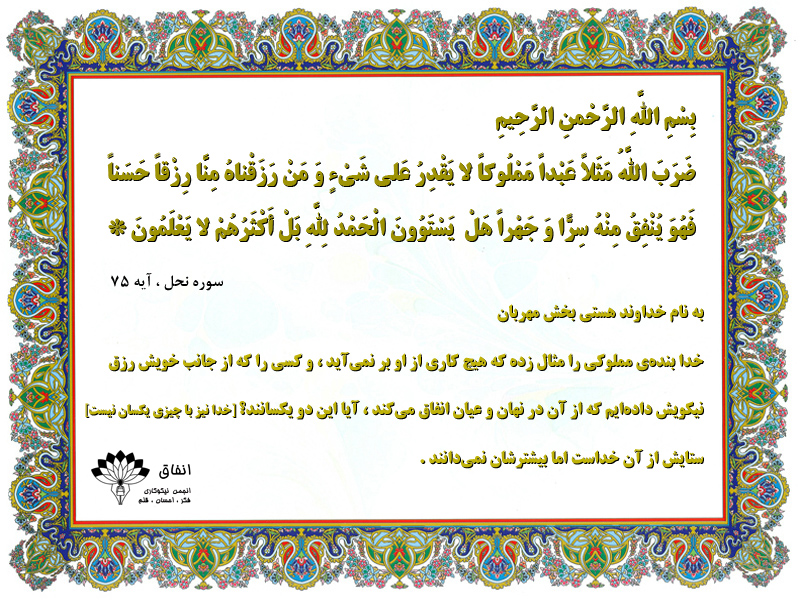 بِسْمِ اللَّهِ الرَّحْمنِ الرَّحِيمِ
ضَرَبَ اللَّهُ مَثَلاً عَبْداً مَمْلُوكاً لا يَقْدِرُ عَلى شَيْءٍ وَ مَنْ رَزَقْناهُ مِنَّا رِزْقاً حَسَناً
فَهُوَ يُنْفِقُ مِنْهُ سِرًّا وَ جَهْراً هَلْ يَسْتَوُونَ الْحَمْدُ لِلَّهِ بَلْ أَكْثَرُهُمْ لا يَعْلَمُونَ *
سوره نحل ، آیه ۷۵
به نام خداوند هستی بخش مهربان
خدا بنده‌ی مملوکی را مثال زده که هیچ کاری از او بر نمی‌آید ، و کسی را که از جانب خویش رزق
نیکویش داده‌ایم که از آن در نهان و عیان انفاق می‌کند ، آیا این دو یکسانند؟ [خدا نیز با چیزی یکسان نیست]
ستایش از آن خداست اما بیشترشان نمی‌دانند .
انفاق
انجمن نیکوکاری
فکر ، احسان ، قلم